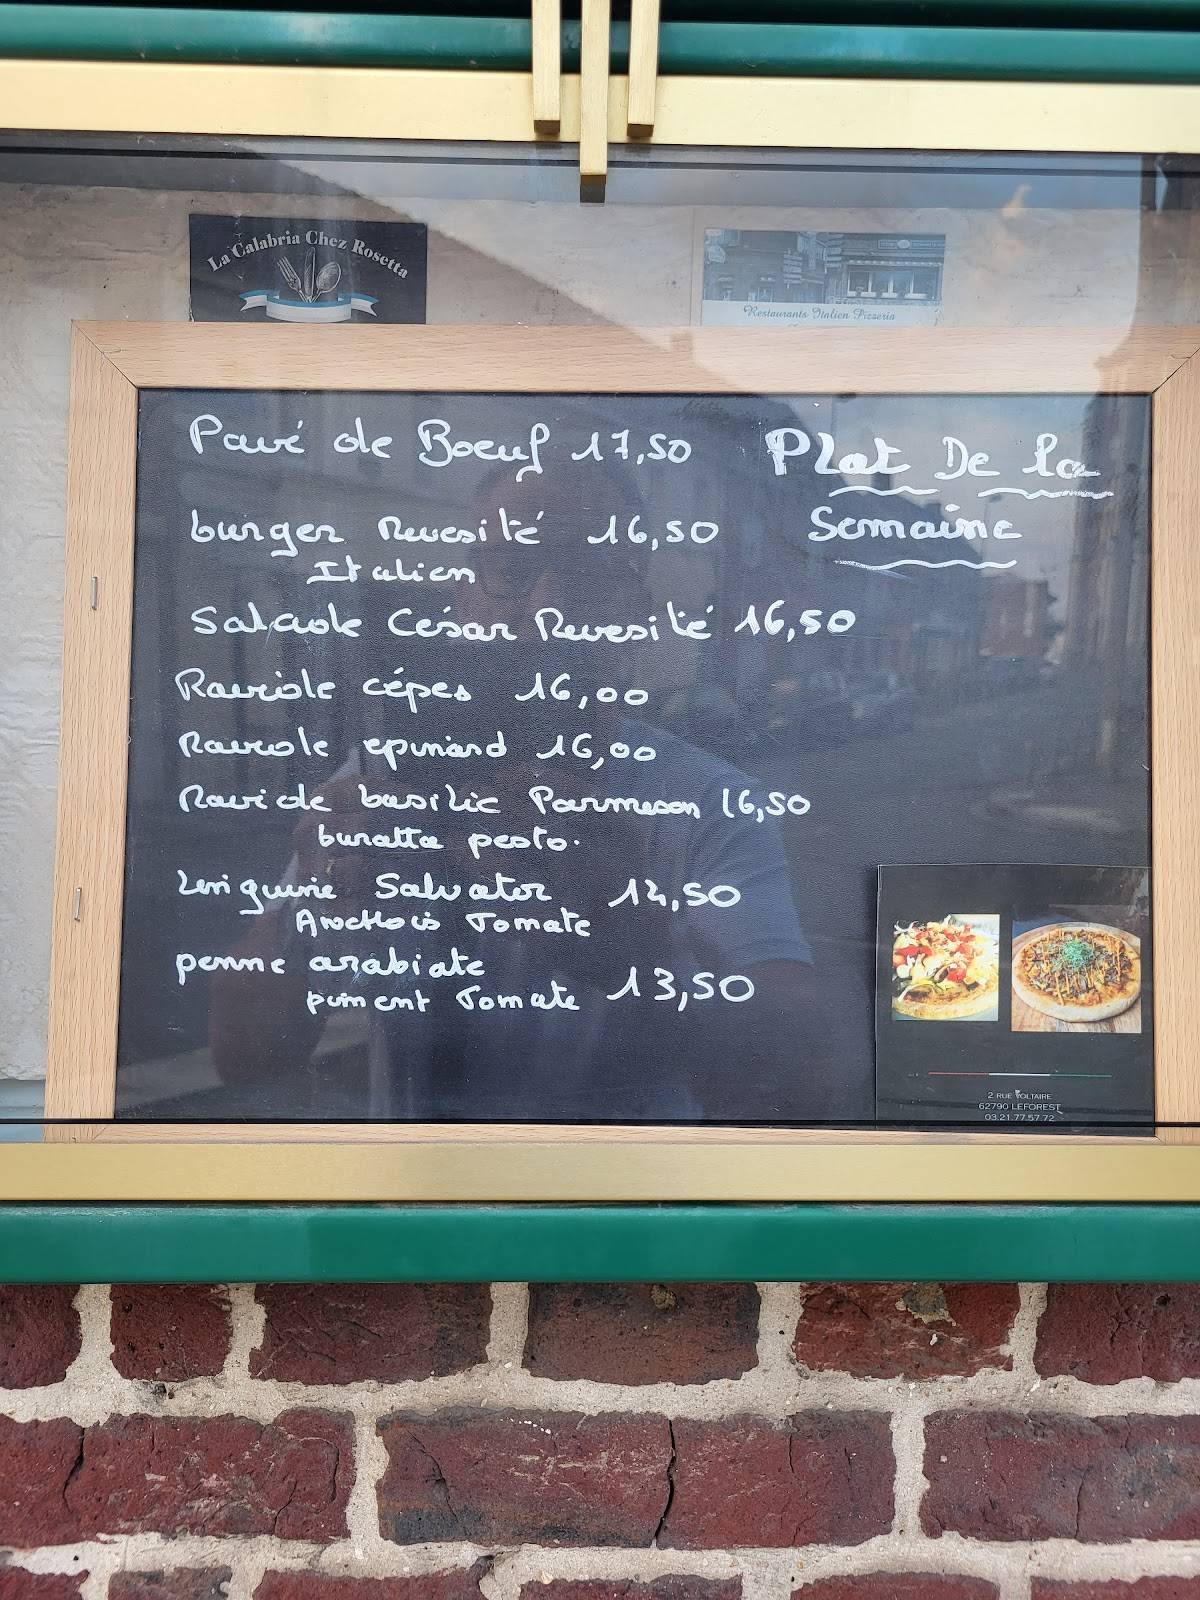 La Calabria Chez Rosetta
Restaurants Italien Pizzeria
Pavé de Boeuf 17,50
Plat De la
Semaine
burger Revesité 16,50
Italien
Salade César Revesité 16,50
Raviole cépes 16,00
Raviole epinard 16,00
Raviole basilic Parmesan 16,50
buratta pesto.
Linguine Salvator 14,50
Anchois Tomate
penne arabiate
piment Tomate 13,50
2 RUE VOLTAIRE
62790 LEFOREST
03.21.77.57.72